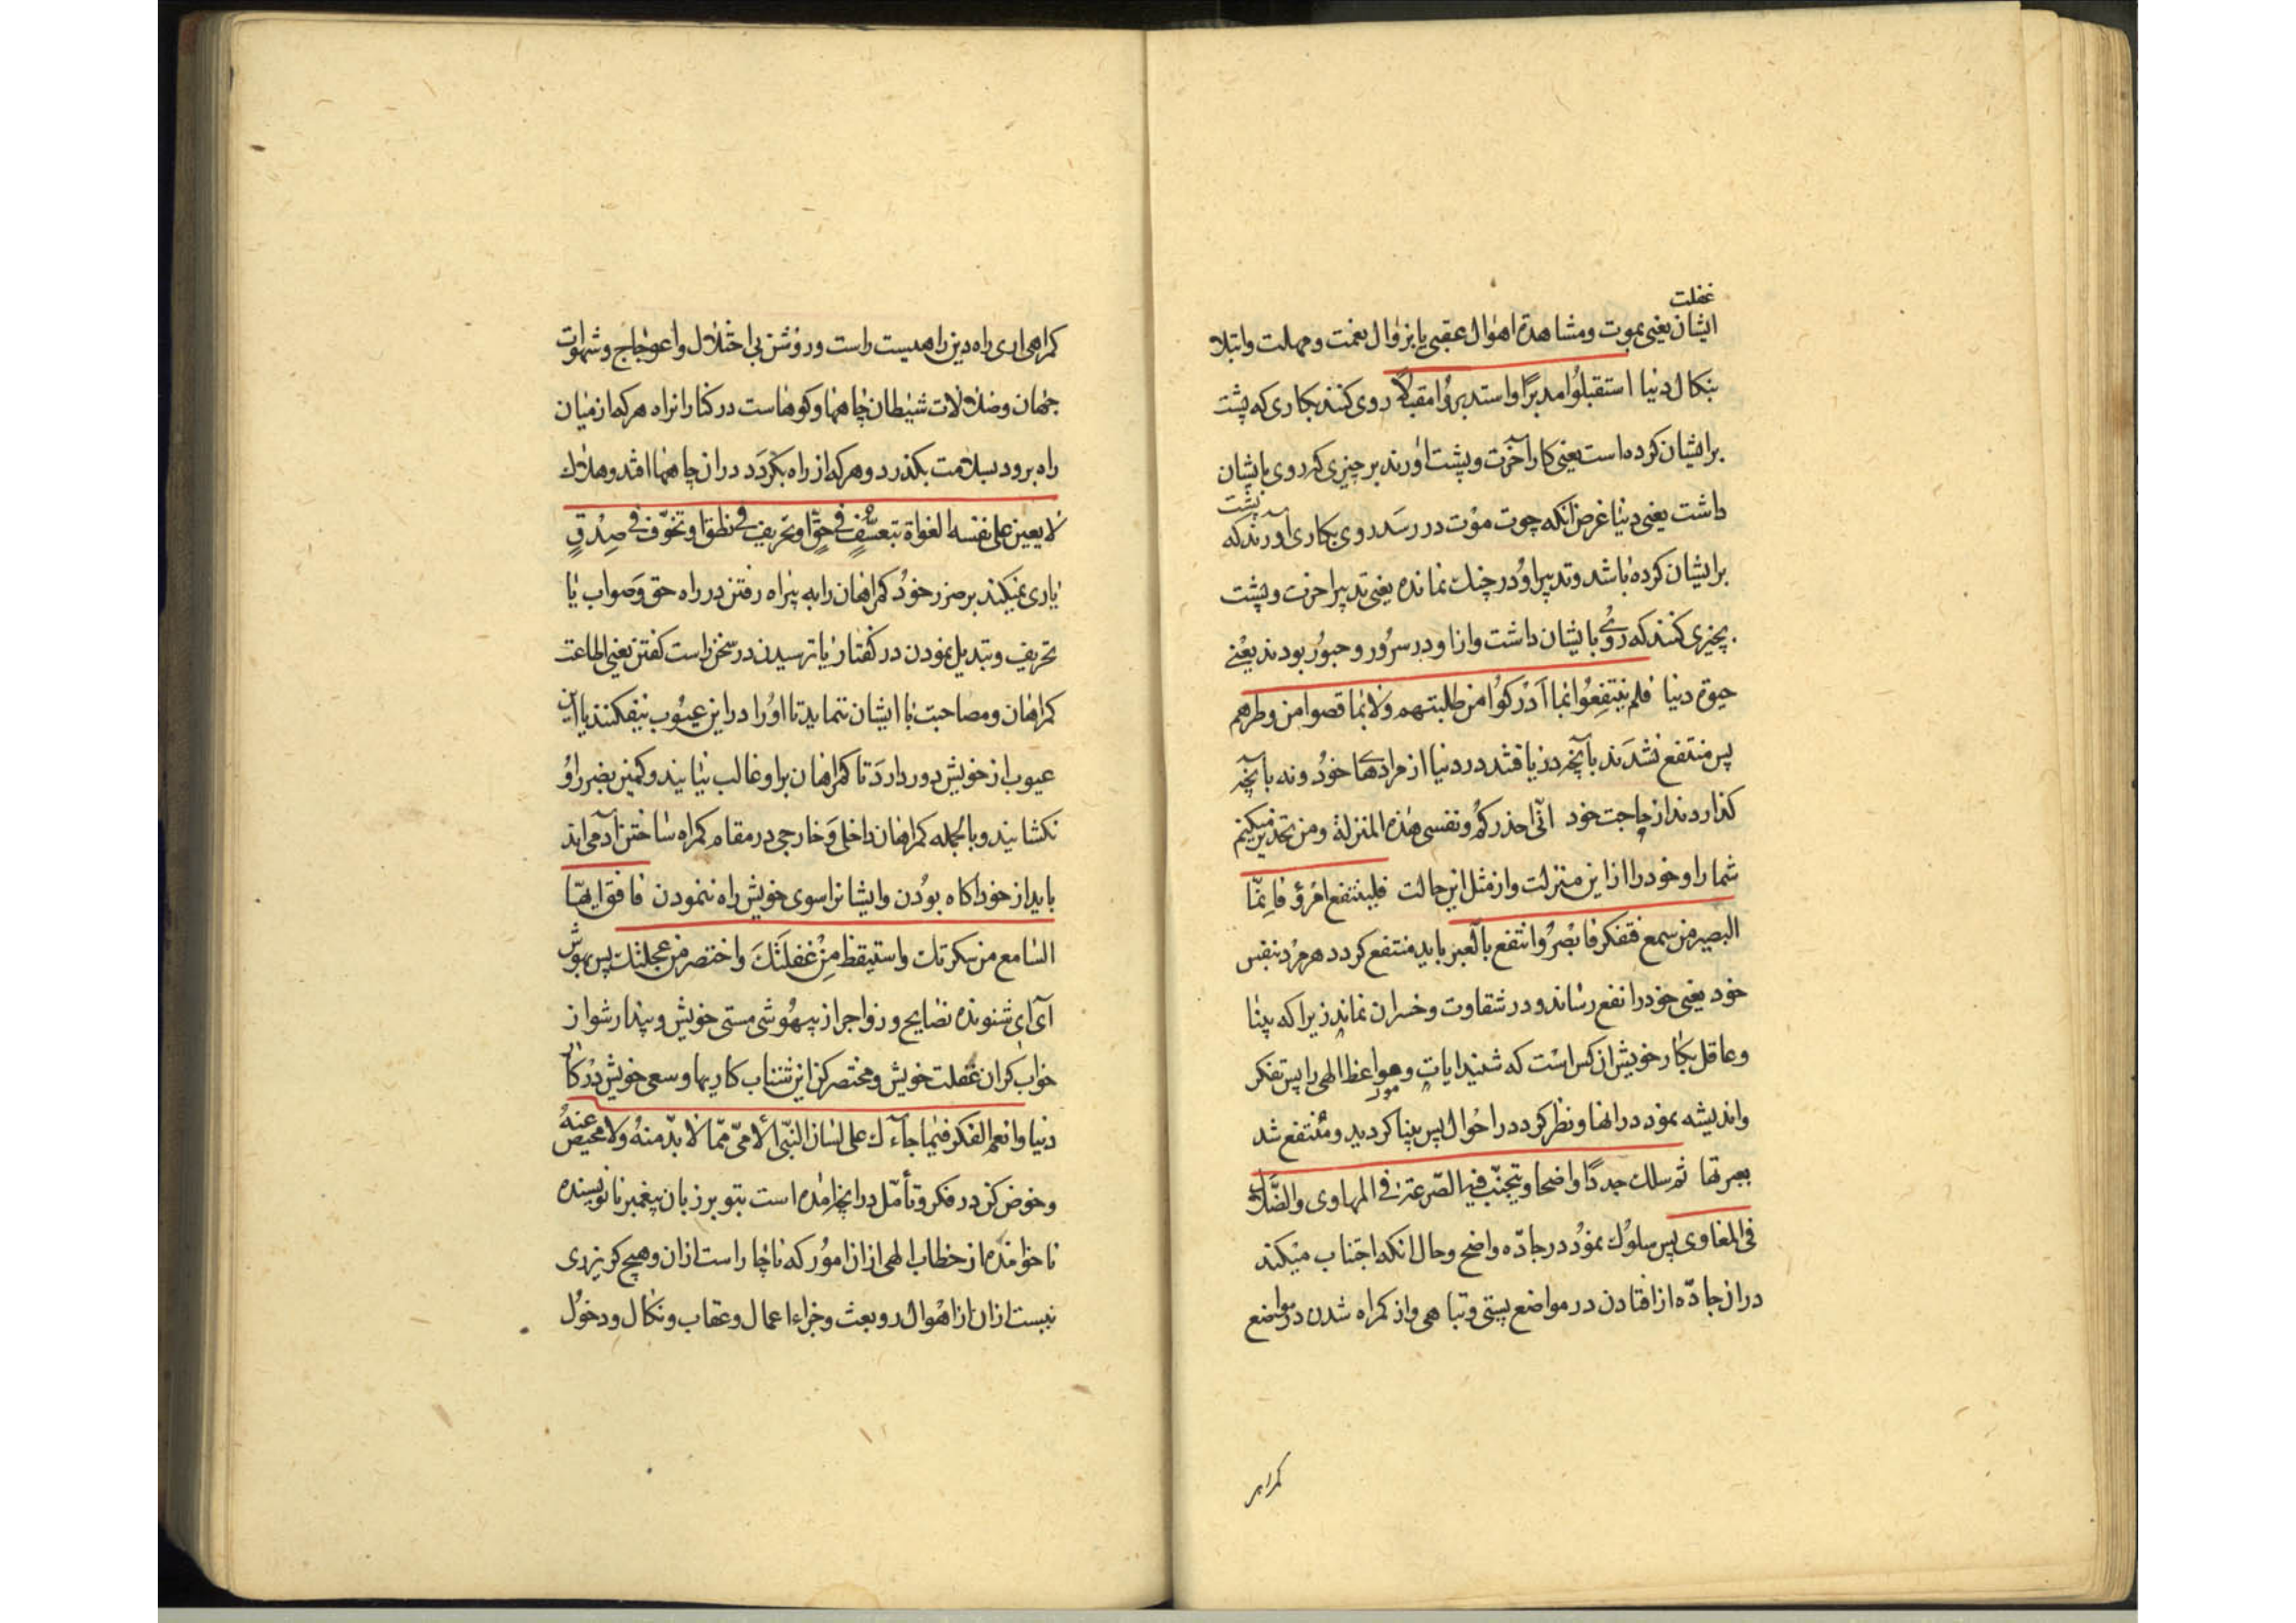 غفلت
ایشان یعنی بموت و مشاهدهٔ اهوال عقبی یا بزوال نعمت و مهلت و ابتلا
بنکال دنیا استقبلُوا مدبرًا و استدبرُوا مقبلًا روی کنند بکاری که پشت
برایشان کرده است یعنی کار آخرت و پشت آورند بر چیزی که روی بایشان
داشت یعنی دنیا غرض انکه چوت موت در رسَد روی بکاری آورند که
پشت
برایشان کرده باشد و تدبیر او در چنك نمانده یعنی تدبیر اخرت و پشت
بچیزی کنند که روُی بایشان داشت و ازاو در سرُور و حبوُر بودند یعنی
حیوة دنیا فلم ینتفِعُوا بما اَدْرَکوُا من طلبتهم و لا بما قصوا من وطرهم
پس منتفع نشدَند بآنچه دریافتند در دنیا از مرادها خود و نه بآنچه
کذاردند از حاجت خود انّی احذرکم و نفسی هذه المنزلة و من تحذیر میکنم
شما را و خود را از این منزلت و از مثل این حالت فلینتفع امْرؤ فاِنمّا
البصیر من سمع فتفکر فابْصرُ و انتفع بالعبر باید منتفع کردد هر مرْد بنفس
خود یعنی خود را نفع رساند و در شقاوت و خسران نماند زیرا که بینا
و عاقل بکار خویش ان کس است که شنید ایات و مواعظ الهی را پس تفکر
و اندیشه نمود در انها و نظر کرد در احوال پس بینا کردید و منتفع شد
بعبرتها ثم سلك جددًا واضحا و یتجنّب فیه الصّرعة فی المهاوی و الضّلال
فی المغاوی پس سلوُك نموُد در جادّه واضح و حال انکه اجتناب میکند
در ان جادّه از افتادن در مواضع پستی و تباهی و از کمراه شدن در مواضع
کمراهی
کمراهی اری راه دین راهیست راست و روُشن بی اختلال و اعوجاج و شهوات
جهان و ضلالات شیطان چاهها و کوهاست در کنار ان راه هر که از میان
راه برود بسلامت بکذرد و هر که از راه بکردَد در ان چاهها افتد و هلاك
لا یعین علی نفسه الغواة بتعسّفٍ فی حقٍّ او تحریف فی نطق او تخوّف فی صِدْقٍ
یاری نمیکند بر ضرر خوُد کمراهان را به بیراه رفتن در راه حق وَ صواب یا
تحریف و تبدیل نمودن در کفتار یا ترسیدن در سخن راست کفتن یعنی اطاعت
کمراهان و مصاحبت با ایشان ننماید تا اوُرا در این عیوُب نیفکنند یا این
عیوب از خویش دور داردَ تا کمراهان براو غالب نیایند و کمین بضرر اوُ
نکشایند و بالجمله کمراهان داخلی وَ خارجی در مقام کمراه ساختن آدمی اند
باید از خود اکاه بوُدن و ایشان را سوی خویش راه ننمودن فافق ایهّا
السّامع من سکرتك و استیقظ مِنْ غفلَتَكَ و اختصر من عجلتك پس بهوش
آی ای شنونده نصایح و زواجر از بیهوُشی مستی خویش و بیدار شو از
خواب کران غفلت خویش و مختصر کن از این شتاب کاریها و سعی خویش درْ کار
دنیا و انعم الفکر فیما جآءك علی لسان النّبی الامیّ ممّا لا بدّ منهُ و لا محیص عنهُ
و خوض کن در فکر و تأمّل در انچه امده است بتو بر زبان پیغمبر نانویسنده
ناخوانده از خطاب الهی از ان اموُر که ناچار است از ان و هیچ کریزدی
نیست از ان از اهْوال و بعث و جزاء اعمال و عقاب و نکال و دخوُل